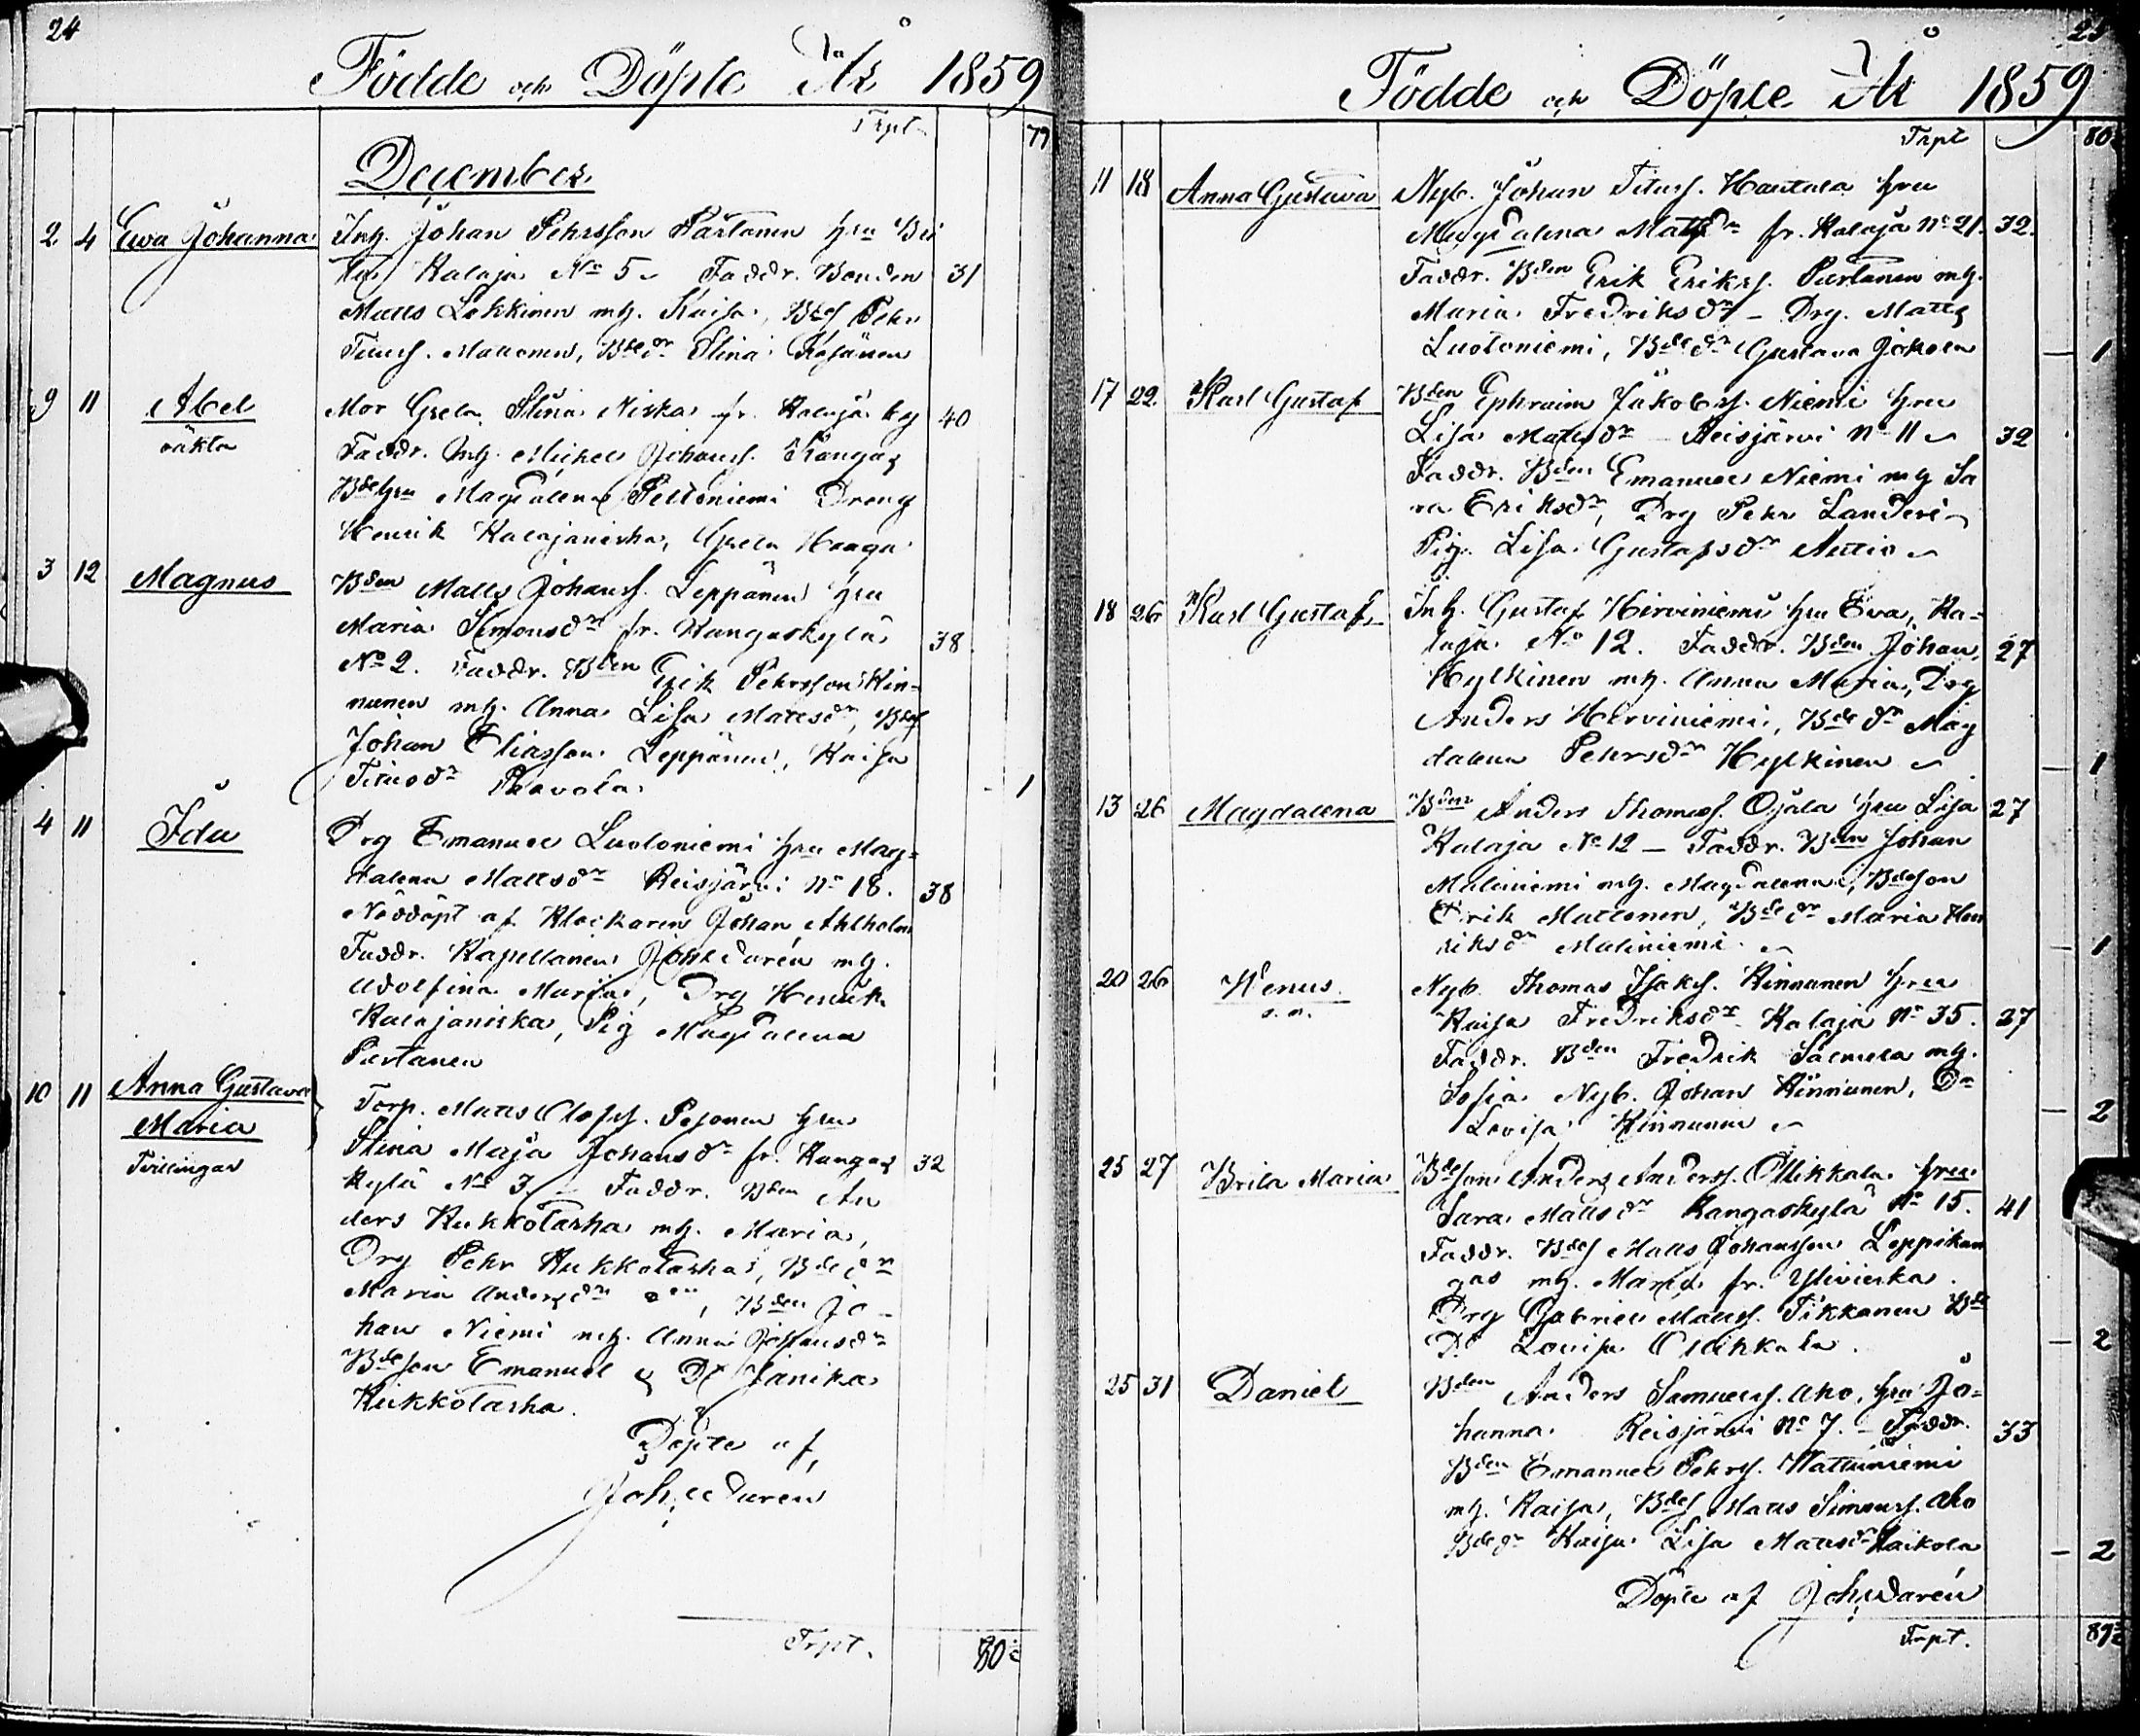 24
Födde och Döpte År 1859
Trpt 77
December
2 4 Ewa Johanna Inh. Johan Pehrsson Partanen hru Bri
ta Kalaja No 5 Faddr. Bonden 31
Matts Lokkinen mh. Kaisa, Bdes Pehr
Titus. Mattonen, Bde dr Stina
9 11 Abel Mor Greta Stina Niska fr. Kalaja by 40
oäkta Faddr. Inh. Mickel Johans. Kangas
Bde hru Magdalena Peltoniemi Dreng
Henrik Kalajaniska, Greta Haaga
3 12 Magnus Bden Matts Johans. Leppänen hru
Maria Simonsdr fr. Kangaskylä 38
No 2. Faddr. Bden Erik Pehrsson Kin-
nunen mh. Anna Lisa Mattsdr, Bdes
Johan Eliasson Leppänen, Kaisa
Titusdr Paavola 1
4 11 Ida Drg Emanuel Luotoniemi hru Mag-
dalena Mattsdr Reisjärvi No 18. 38
Nöddöpt af Klockaren Johan Ahlholm
Faddr. Kapellanen Joh. Durén mh.
Adolfina Maria, Drg Henrik
Kalajaniska, Pig Magdalena
Partanen
10 11 Anna Gustava Torp. Matts Pesonen hru
Maria Stina Maja Johansdr fr. Kangas 32
Tvillingar kylä No 3. Faddr. Bden An
ders Kukkotarha mh. Maria,
Drg Pehr Kukkotarha, Bde dr
Maria Andersdr, Bden Jo-
han Niemi mh. Anna Johansdr
Bdeson Emanuel & Dr Janika
Kukkotarha.
Döpte af
Joh. Durén
Trpt. 80
25
Födde och Döpte År 1859
Trpt 80
11 18 Anna Gustava Nyb. Johan Titus. Hautala hru
Magdalena Mattsdr fr. Kalaja No 21. 32.
Faddr. Bden Erik Eriks. Partanen mh.
Maria Fredriksdr - Drg. Matts
Luotoniemi, Bde dr Gustava Jokela 1
17 22 Karl Gustaf Bden Ephraim Jakobs. Niemi hru
Lisa Mattsdr Reisjärvi No 11 32
Faddr. Bden Emanuel Niemi mh Sa
ra Eriksdr, Drg Pehr Landeri
Pig. Lisa Gustafsdr Anttio
18 26 Karl Gustaf Inh. Gustaf Hirviniemi hru Eva, Ka-
laja No 12. Faddr. Bden Johan 27
Hylkinen mh. Anna Maria, Drg
Anders Hirviniemi, Bde dr Mag
dalena Pehrsdr Hylkinen 1
13 26 Magdalena Bden Anders Thomass. Ojala hru Lisa 27
Kalaja No 12 - Faddr. Bden Johan
Maliniemi mh. Magdalena, Bdeson
Erik Mattonen, Bde dr Maria Hen
riksdr Maliniemi. 1
20 26 Wenus Nyb. Thomas Isaks. Kinnunen hru
Kaisa Fredriksdr Kalaja No 35. 27
Faddr. Bden Fredrik Salmela mh.
Sofia Nyb. Johan Kinnunen, Dr
Lovisa Kinnunen 2
25 27 Brita Maria Bdeson Anders Anders. Ollikkala hru
Sara Mattsdr Kangaskylä No 15. 41
Faddr. Bdes Matts Johansson Leppikan
gas mh. Maria fr. Ylivieska.
Drg Gabriel Matts. Tikkanen Bde
Dr Lovisa Ollikkala. 2
25 31 Daniel Bden Anders Samuels. Aho, hru Jo-
hanna Reisjärvi No 7. - Faddr. 33
Bden Emanuel Pehrs. Kattiniemi
mh. Kaisa, Bdes Matts Simons. Aho
Bde dr Kaisa Lisa Mattsdr 2
Döpte af Joh. Durén
Trpt. 89